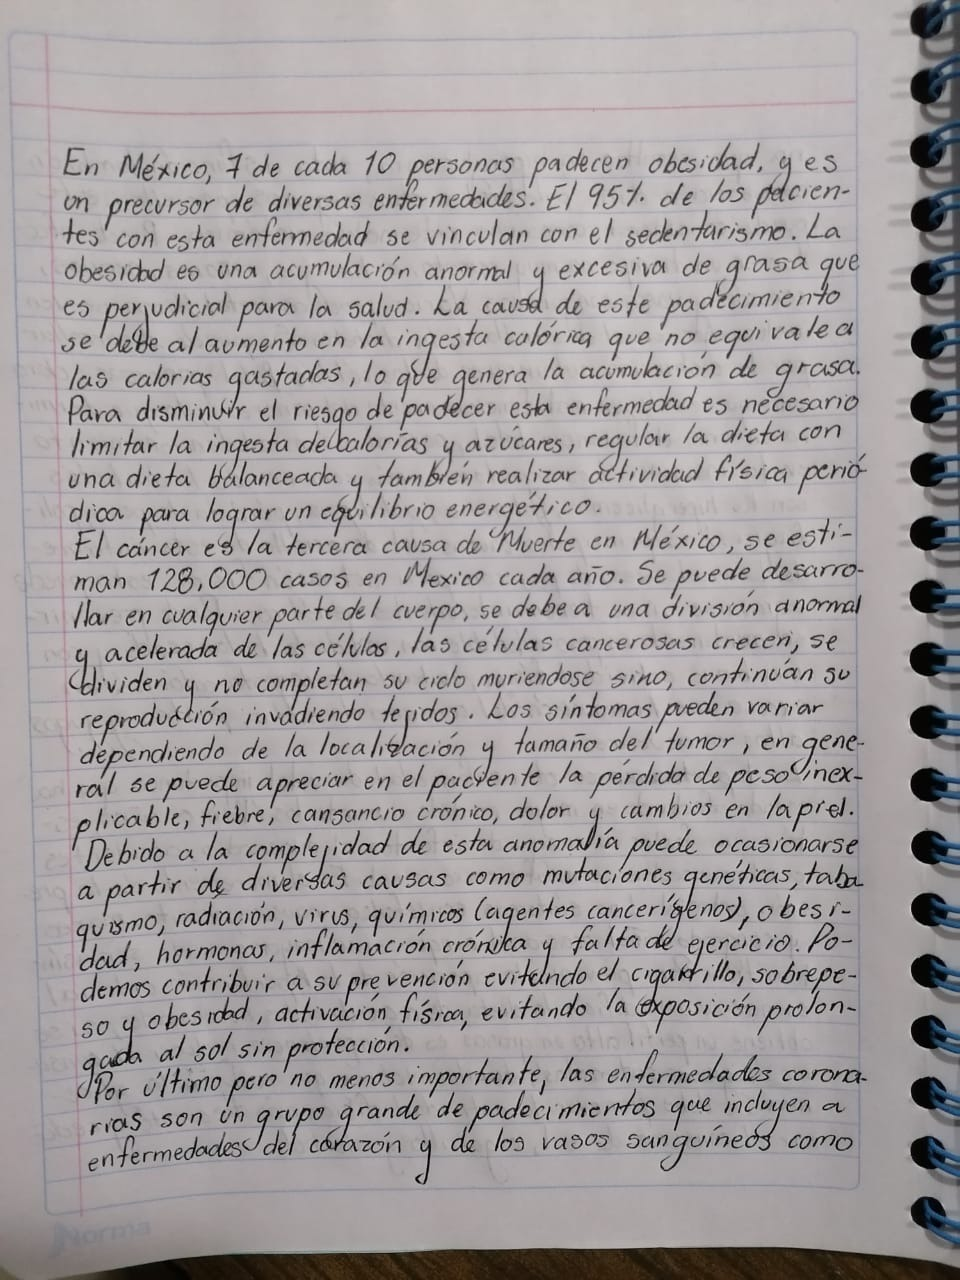 En México, 7 de cada 10 personas padecen obesidad, y es
un precursor de diversas enfermedades. El 95% de los pacien-
tes con esta enfermedad se vinculan con el sedentarismo. La
obesidad es una acumulación anormal y excesiva de grasa que
es perjudicial para la salud. La causa de este padecimiento
se debe al aumento en la ingesta calórica que no equivale a
las calorias gastadas, lo que genera la acumulación de grasa.
Para disminuir el riesgo de padecer esta enfermedad es necesario
limitar la ingesta de calorías y azúcares, regular la dieta con
una dieta balanceada y también realizar actividad física perió-
dica para lograr un equilibrio energético.
El cáncer es la tercera causa de Muerte en México, se esti-
man 128,000 casos en Mexico cada año. Se puede desarro-
llar en cualquier parte del cuerpo, se debe a una división anormal
y acelerada de las células, las células cancerosas crecen, se
dividen y no completan su ciclo muriendose sino, continuán su
reproducción invadiendo tejidos. Los síntomas pueden variar
dependiendo de la localización y tamaño del tumor, en gene-
ral se puede apreciar en el paciente la pérdida de peso inex-
plicable, fiebre, cansancio crónico, dolor y cambios en la piel.
Debido a la complejidad de esta anomalía puede ocasionarse
a partir de diversas causas como mutaciones genéticas, taba
quismo, radiación, virus, químicos (agentes cancerígenos), obesi-
dad, hormonas, inflamación crónica y falta de ejercicio. Po-
demos contribuir a su prevención evitando el cigarrillo, sobrepe-
so y obesidad, activación física, evitando la exposición prolon-
gada al sol sin protección.
Por último pero no menos importante, las enfermedades corona-
rias son un grupo grande de padecimientos que incluyen a
enfermedades del corazón y de los vasos sanguíneos como
Norma